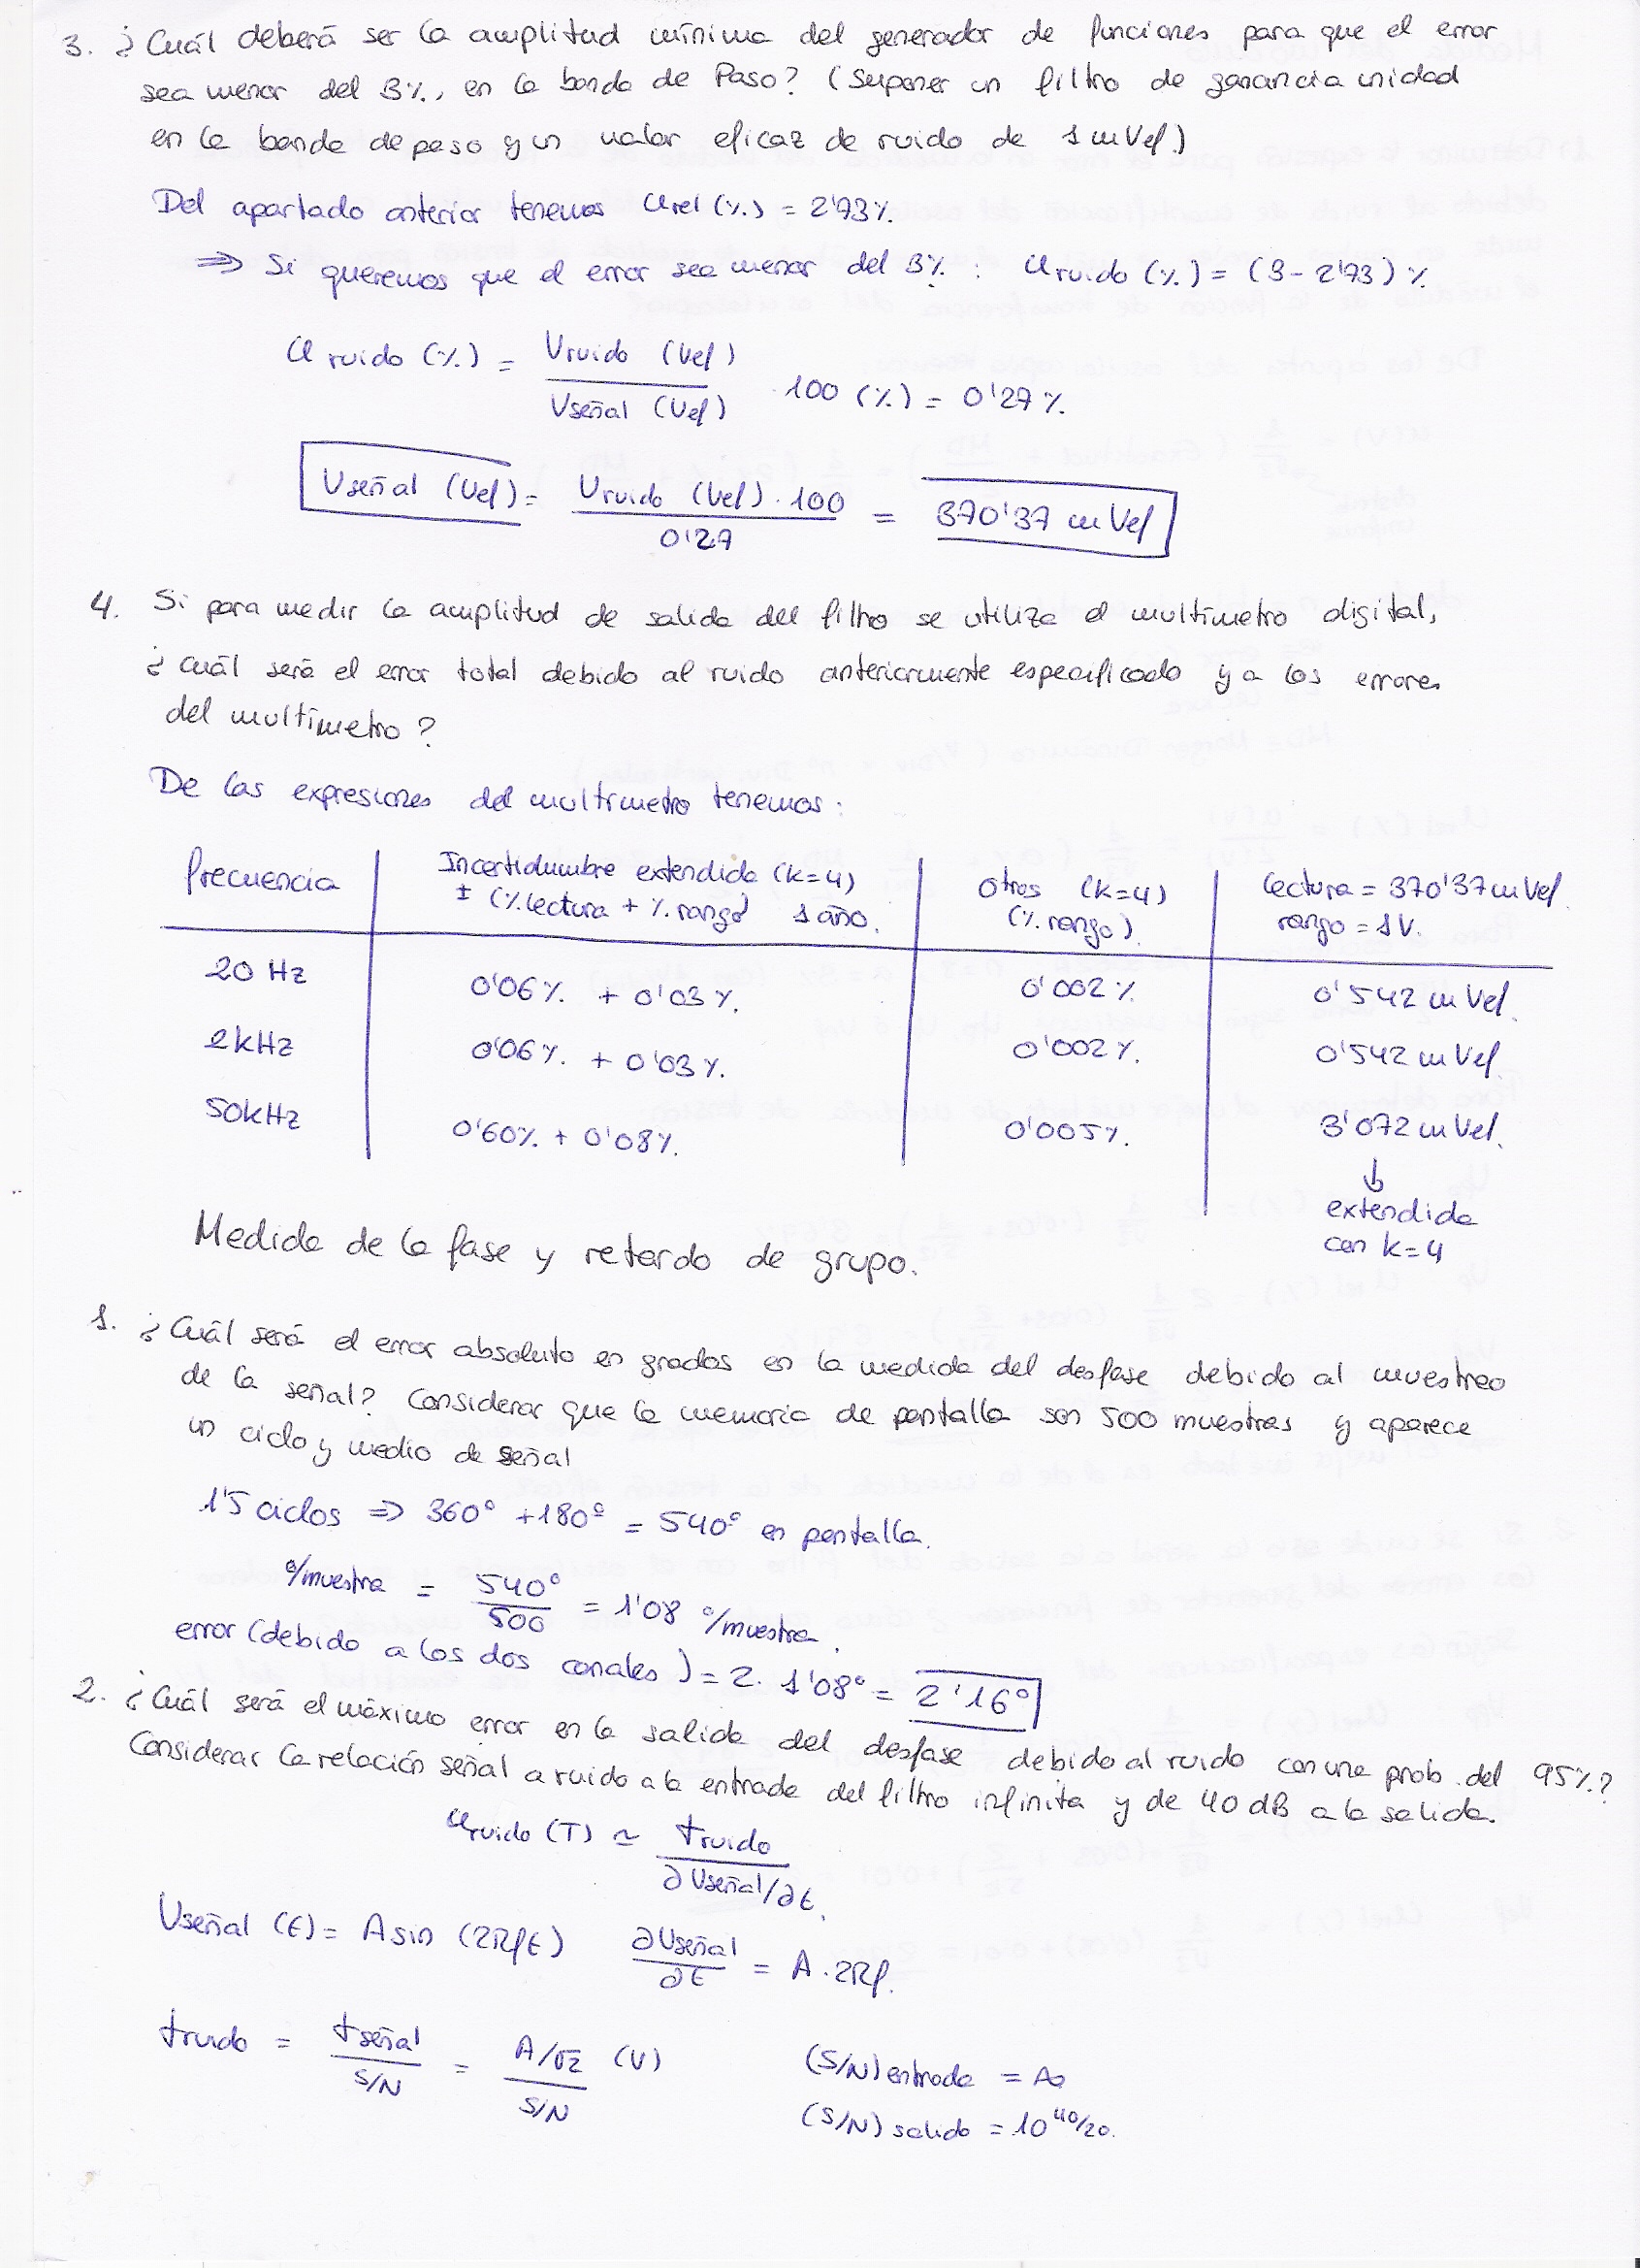 3. ¿Cuál deberá ser la amplitud mínima del generador de funciones para que el error
sea menor del 3%, en la banda de Paso? (Suponer un filtro de ganancia unidad
en la banda de paso y un valor eficaz de ruido de 1 mVef.)
Del apartado anterior tenemos Urel (%) = 2'73%
⇒ Si queremos que el error sea menor del 3% : Uruido (%) = (3 - 2'73) %
U ruido (%) = Vruido (Vef) / Vseñal (Vef) · 100 (%) = 0'27 %
Vseñal (Vef) = Vruido (Vef) · 100 / 0'27 = 370'37 mVef
4. Si para medir la amplitud de salida del filtro se utiliza el multímetro digital,
¿cuál será el error total debido al ruido anteriormente especificado y a los errores
del multímetro?
De las expresiones del multímetro tenemos:
frecuencia | Incertidumbre extendida (k=4) ± (% lectura + % rango) 1 año. | Otros (k=4) (% rango) | lectura = 370'37 mVef. rango = 1V.
20 Hz | 0'06 % + 0'03 %. | 0'002 % | 0'542 mVef.
2kHz | 0'06 %. + 0'03 %. | 0'002 %. | 0'542 mVef.
50kHz | 0'60% + 0'08%. | 0'005%. | 3'072 mVef.
↓
extendida
con k=4
Medida de la fase y retardo de grupo.
1. ¿Cuál será el error absoluto en grados en la medida del desfase debido al muestreo
de la señal? Considerar que la memoria de pantalla son 500 muestras y aparece
un ciclo y medio de señal
1'5 ciclos ⇒ 360° + 180° = 540° en pantalla.
°/muestra = 540° / 500 = 1'08 °/muestra.
error (debido a los dos canales) = 2 · 1'08° = 2'16°
2. ¿Cuál será el máximo error en la salida del desfase debido al ruido con una prob. del 95%?
Considerar la relación señal a ruido a la entrada del filtro infinita y de 40 dB a la salida.
Uruido (T) ≃ Truido / ∂Vseñal/∂t.
Vseñal (t) = A sin (2πft) ∂Vseñal / ∂t = A · 2πf.
Truido = Tseñal / S/N = A/√2 / S/N (V) (S/N) entrada = ∞
(S/N) salida = 10^40/20.